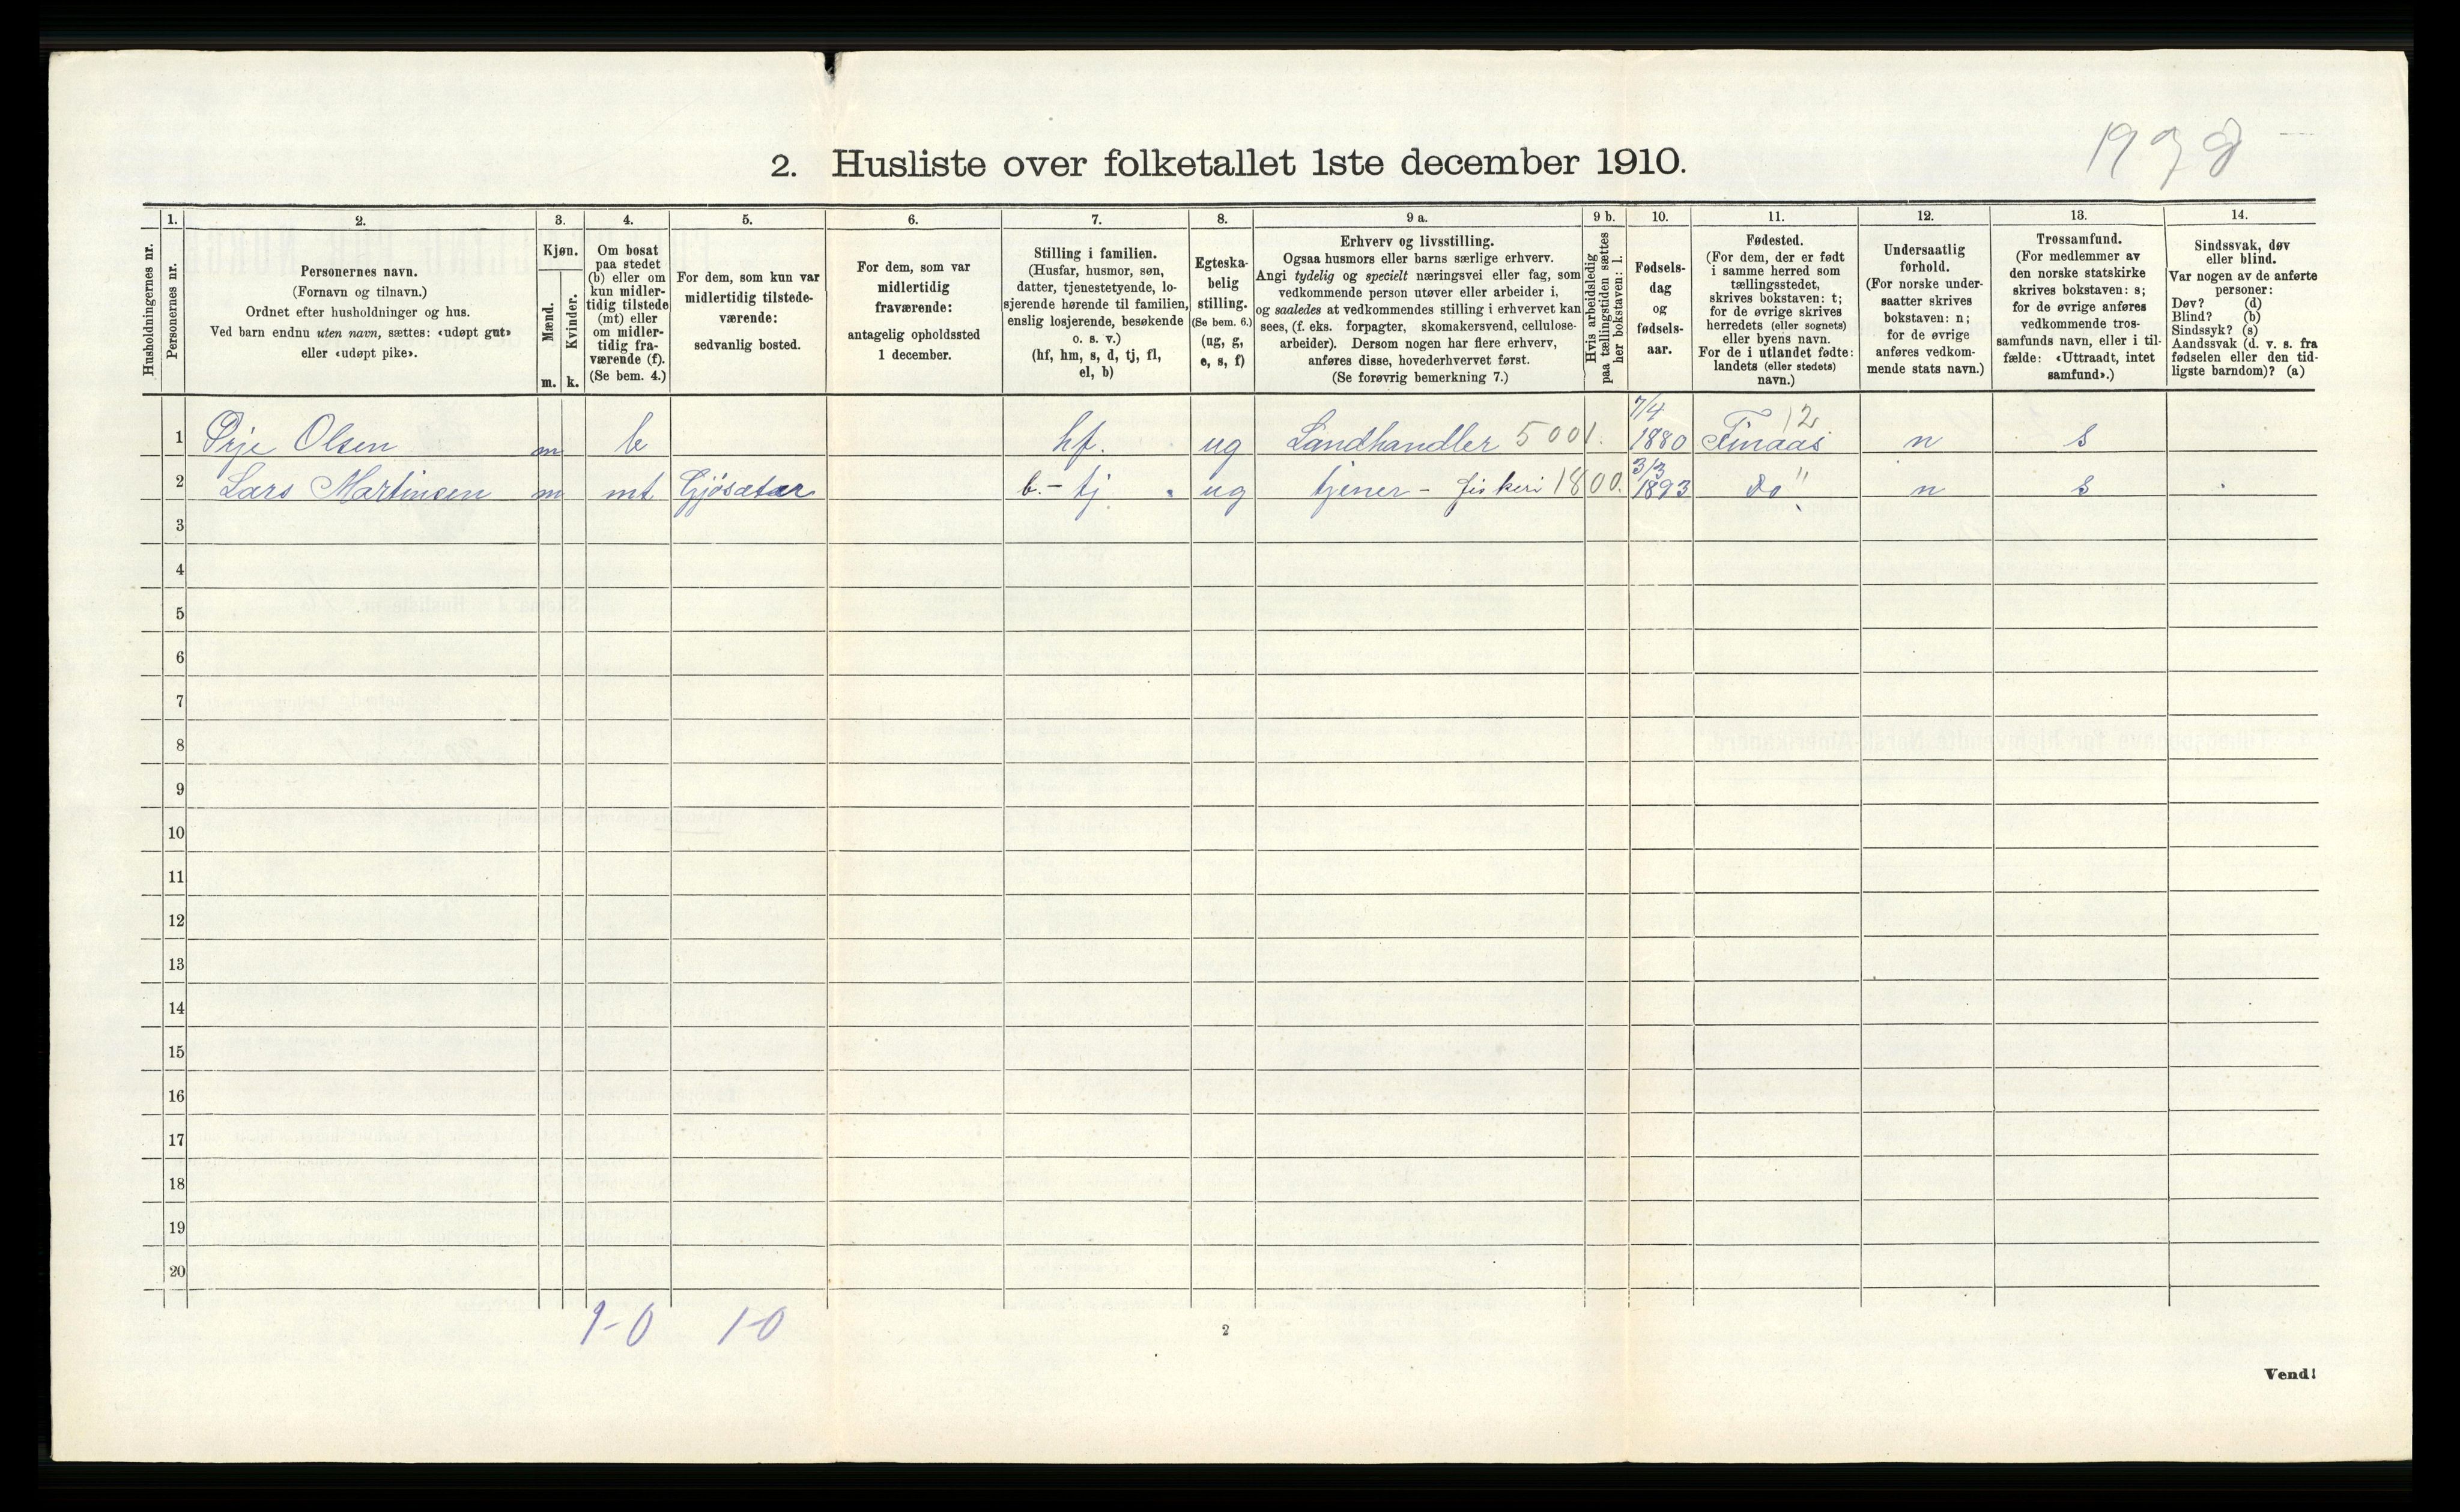 2. Husliste over folketallet 1ste december 1910.
1. 2. 3. 4. 5. 6. 7. 8. 9 a. 9 b. 10. 11. 12. 13. 14.
Husholdningernes nr.
Personernes nr.
Personernes navn.
(Fornavn og tilnavn.)
Ordnet efter husholdninger og hus.
Ved barn endnu uten navn, sættes: «udøpt gut»
eller «udøpt pike».
Kjøn.
Mænd.
Kvinder.
m. k.
Om bosat
paa stedet
(b) eller om
kun midler-
tidig tilstede
(mt) eller
om midler-
tidig fra-
værende (f).
(Se bem. 4.)
For dem, som kun var
midlertidig tilstede-
værende:
sedvanlig bosted.
For dem, som var
midlertidig
fraværende:
antagelig opholdssted
1 december.
Stilling i familien.
(Husfar, husmor, søn,
datter, tjenestetyende, lo-
sjerende hørende til familien,
enslig losjerende, besøkende
o. s. v.)
(hf, hm, s, d, tj, fl,
el, b)
Egteska-
belig
stilling.
(Se bem. 6.)
(ug, g,
e, s, f)
Erhverv og livsstilling.
Ogsaa husmors eller barns særlige erhverv.
Angi tydelig og specielt næringsvei eller fag, som
vedkommende person utøver eller arbeider i,
og saaledes at vedkommendes stilling i erhvervet kan
sees, (f. eks. forpagter, skomakersvend, cellulose-
arbeider). Dersom nogen har flere erhverv,
anføres disse, hovederhvervet først.
(Se forøvrig bemerkning 7.)
Hvis arbeidsledig
paa tællingstiden sættes
her bokstaven: l.
Fødsels-
dag
og
fødsels-
aar.
Fødested.
(For dem, der er født
i samme herred som
tællingsstedet,
skrives bokstaven: t;
for de øvrige skrives
herredets (eller sognets)
eller byens navn.
For de i utlandet fødte:
landets (eller stedets)
navn.)
Undersaatlig
forhold.
(For norske under-
saatter skrives
bokstaven: n;
for de øvrige
anføres vedkom-
mende stats navn.)
Trossamfund.
(For medlemmer av
den norske statskirke
skrives bokstaven: s;
for de øvrige anføres
vedkommende tros-
samfunds navn, eller i til-
fælde: «Uttraadt, intet
samfund».)
Sindssvak, døv
eller blind.
Var nogen av de anførte
personer:
Døv? (d)
Blind? (b)
Sindssyk? (s)
Aandssvak (d. v. s. fra
fødselen eller den tid-
ligste barndom)? (a)
1 Olsen m b hf. ug Landhandler 5001. 7/4 1880 Finaas 12 n s
2 Lars Martinsen m mt Gjøsæter b. - tj ug tjener - fiskeri 1800. 3/3 1893 do " n s
3
4
5
6
7
8
9
10
11
12
13
14
15
16
17
18
19
20
1-0 1-0
2
Vend!